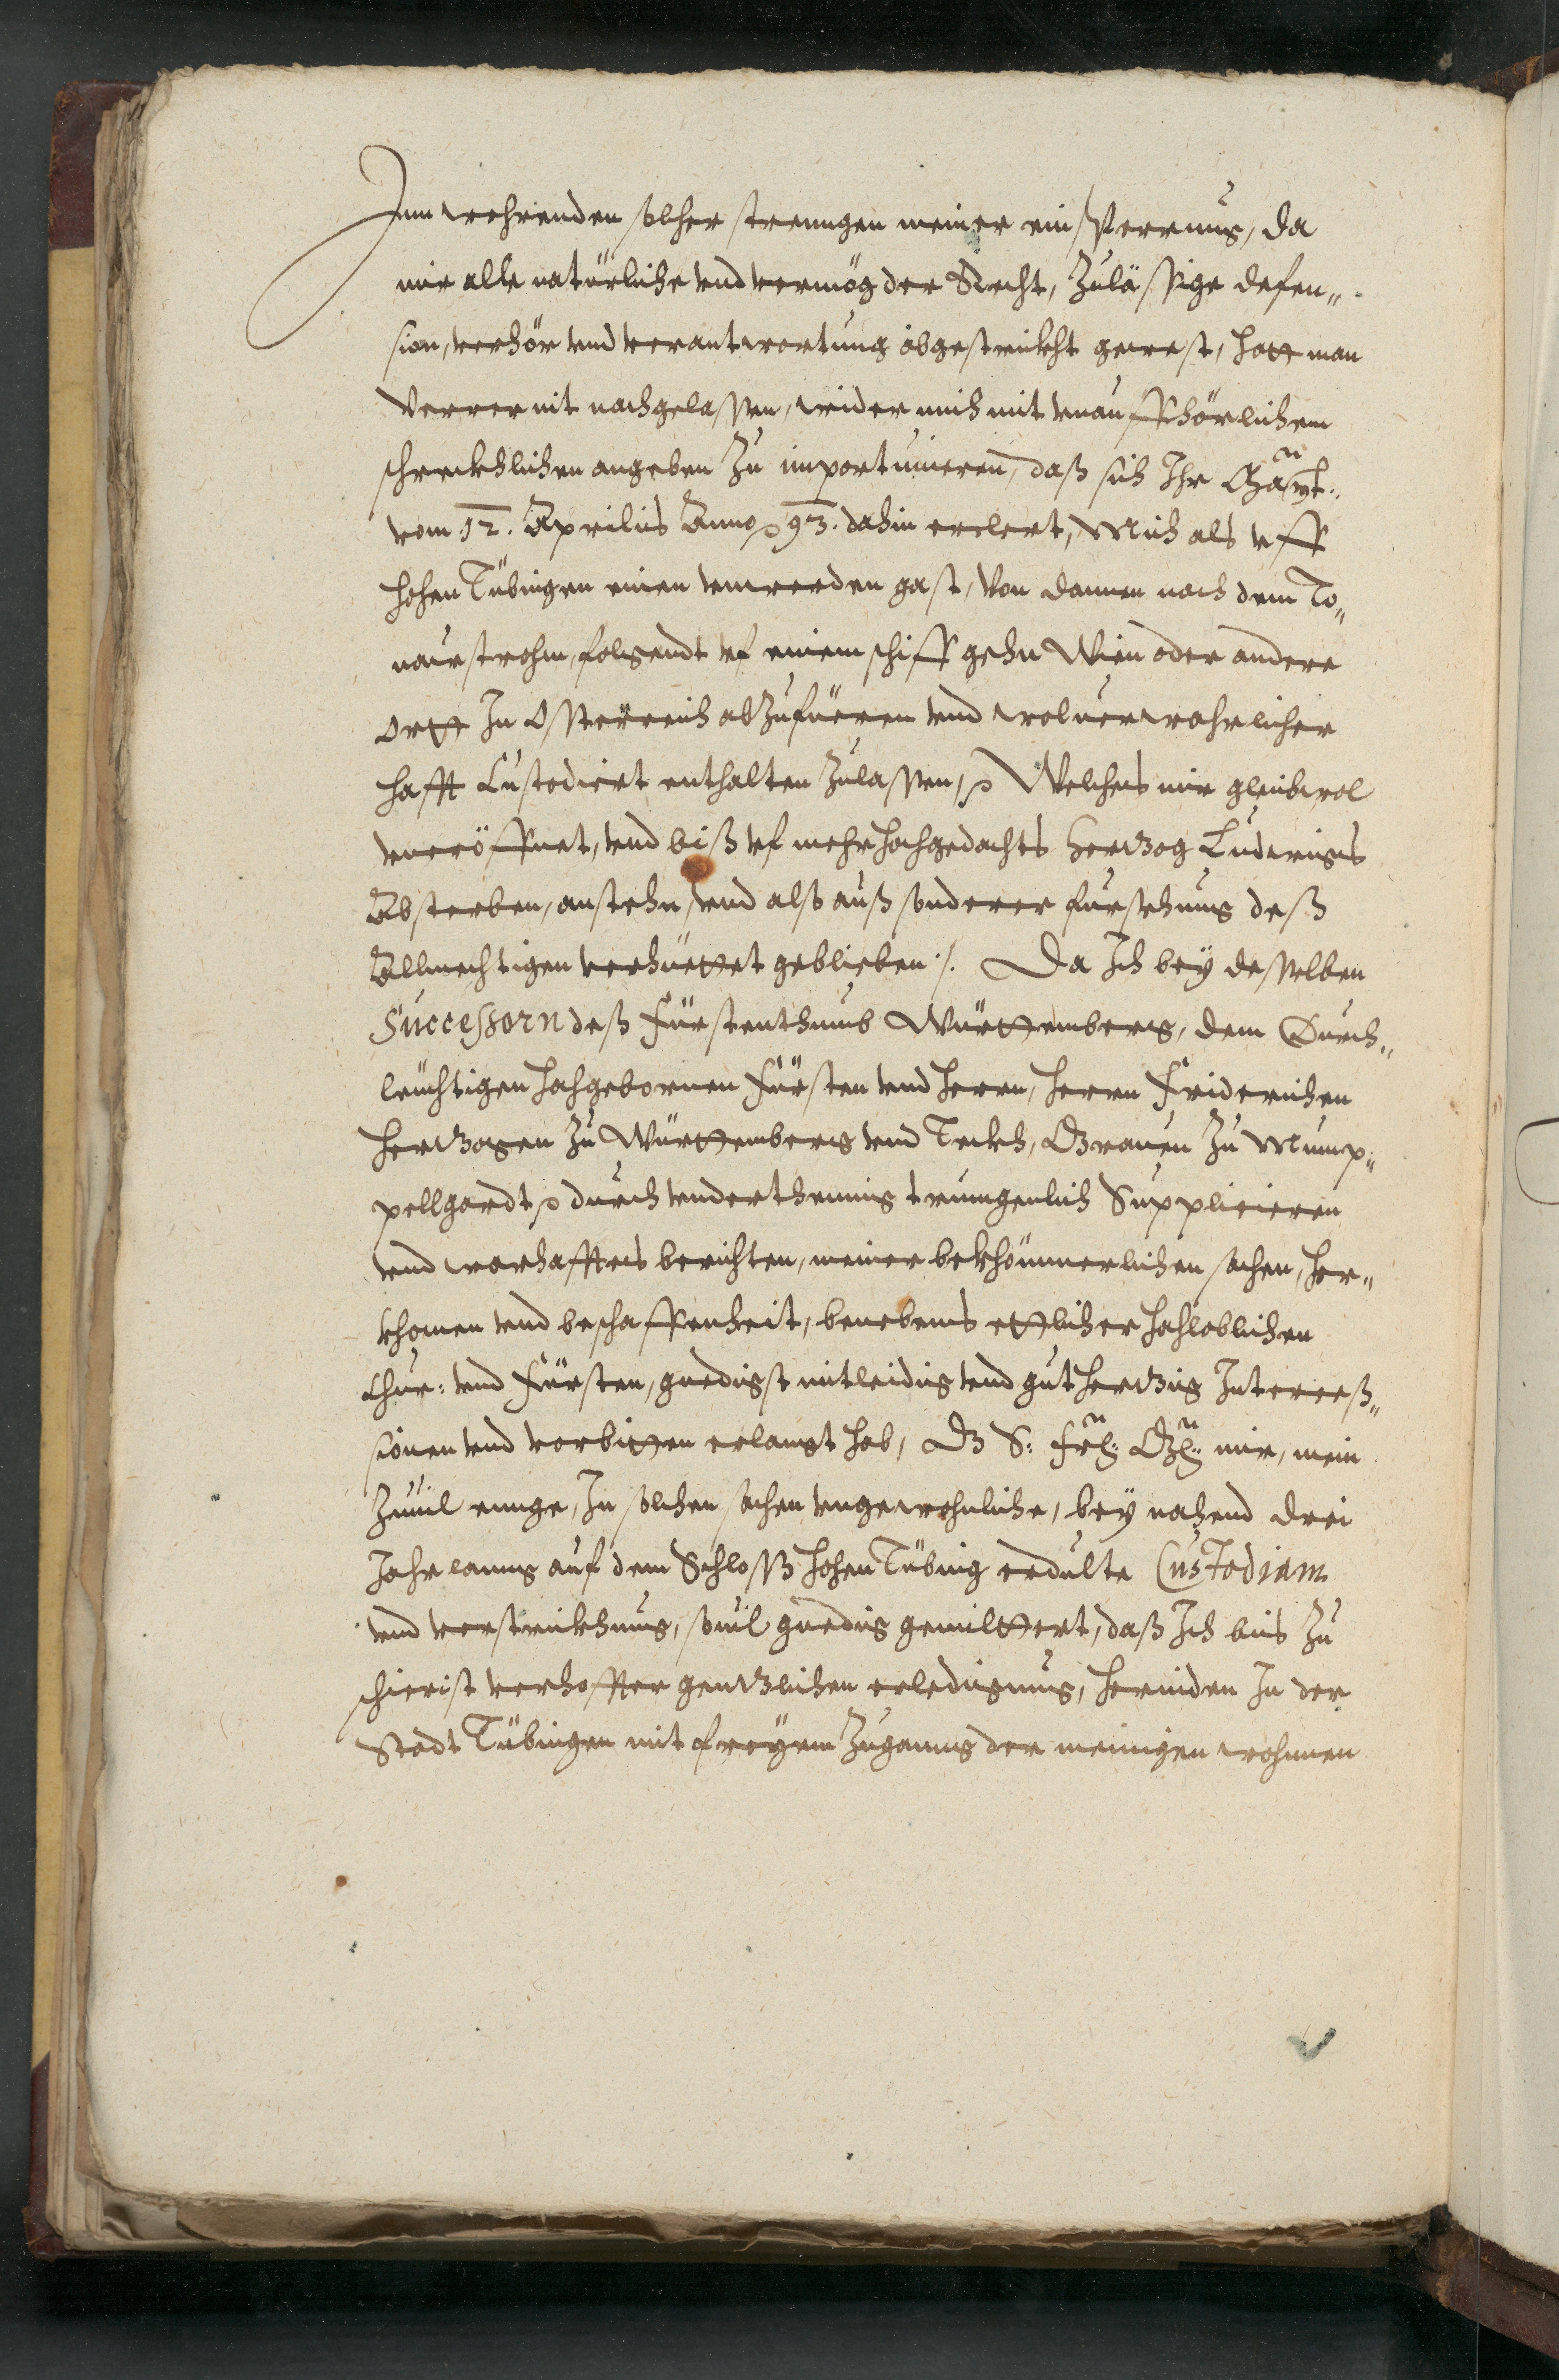 Inn wehrenden solcher strenngen meiner ein sperrung, da
mir alle natürliche vnd vermög der Recht, zuläßige defen„
sion, verhör vnd verantwortung abgestrickht gewest, hatt man
verrer nit nachgelassen, wider mich mit vnauffhörlichem
schreckhlichen angeben zu importunieren, daß sich Ihr
vom 12. Aprilis Anno 93. dahin erclert, Mich als vff
hohen Tübingen einen vnwerden gast, von dannen nach dem To„
nawstrohm, folgendt vf einem schiff gehn Wien oder andere
ortt In Osterreich abzufüeren vnd wolverwahrlicher
hafft Custodiert enthalten zulassen, Welches mir gleichwol
vneröffnet, vnd biß vf mehrhochgedachts hertzog Ludwigs
Absterben, anstehn, vnd also auß sonderer fursehung deß
Allmechtigen verhüettet geblieben ·/. Da Ich bey desselben
Successorn deß Fürstenthumb Württemberg, dem Durch„
leuchtigen hochgebornen Fürsten vnd herrn, herrn Friderichen
hertzogen zu Württemberg vnd Teckh, Grauen zu Mump„
pellgardt durch vnderthennig trungenlich Supplicieren
vnd warhafftes berichten, meiner bekhömmerlichen sachen, her„
khomen vnd beschaffenheit, benebens ettlicher hochloblichen
Chur: vnd Fürsten, gnedigst mitleidig vnd guthertzig Interceß„
sionen vnd vorbitten erlangt hab, Dz S: Frl: Gn: mir, mein
zuuil ennge, In solchen sachen vngewohnliche, bey nahend drei
Jahr lanng auf dem Schloß hohen Tübing erdulte Custodiam
vnd verstrickhung, souil gnedig gemiltert, daß Ich bis zu
schierist verhoffter gentzlichen erledigung, herniden In der
Stadt Tübingen mit freyem zuganng der meinigen wohnen